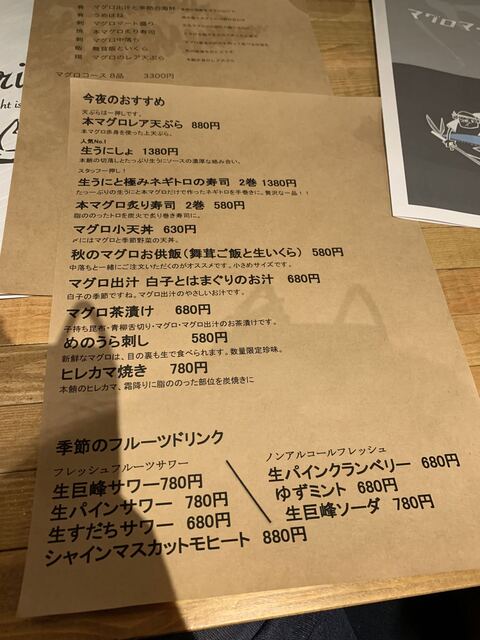 有 マグロ出汁と季節の海鮮
有 うめはね
刺 マグロマート盛り
焼 本マグロ炙り寿司
刺 マグロ中落ち
飯 舞茸飯といくら
揚 マグロのレア天ぷら
マグロコース 8品 3300円
マグロマー
今夜のおすすめ
天ぷらは一押しです。
本マグロレア天ぷら 880円
本マグロ赤身を使った上天ぷら。
人気No.1
生うにしょ 1380円
本鮪の切落しとたっぷり生うにソースの濃厚な絡み合い。
スタッフ一押し!
生うにと極みネギトロの寿司 2巻1380円
たっーぷりの生うにと本マグロだけで作ったネギトロを手巻きに。贅沢な一品!!
本マグロ炙り寿司 2巻 580円
脂ののったトロを炭火で炙り巻き寿司に。
マグロ小天丼 630円
〆にはマグロと季節野菜の天丼。
秋のマグロお供飯(舞茸ご飯と生いくら) 580円
中落ちと一緒にご注文いただくのがオススメです。小さめサイズです。
マグロ出汁 白子とはまぐりのお汁 680円
白子の季節ですね。マグロ出汁のやさしいお汁です。
マグロ茶漬け 680円
子持ち昆布・青柳舌切り・マグロ・マグロ出汁のお茶漬けです。
めのうら刺し 580円
新鮮なマグロは、目の裏も生で食べられます。数量限定珍味。
ヒレカマ焼き 780円
本鮪のヒレカマ、霜降りに脂ののった部位を炭焼きに
季節のフルーツドリンク
フレッシュフルーツサワー
生巨峰サワー780円
生パインサワー 780円
生すだちサワー 680円
シャインマスカットモヒート 880円
ノンアルコールフレッシュ
生パインクランベリー 680円
ゆずミント 680円
生巨峰ソーダ 780円